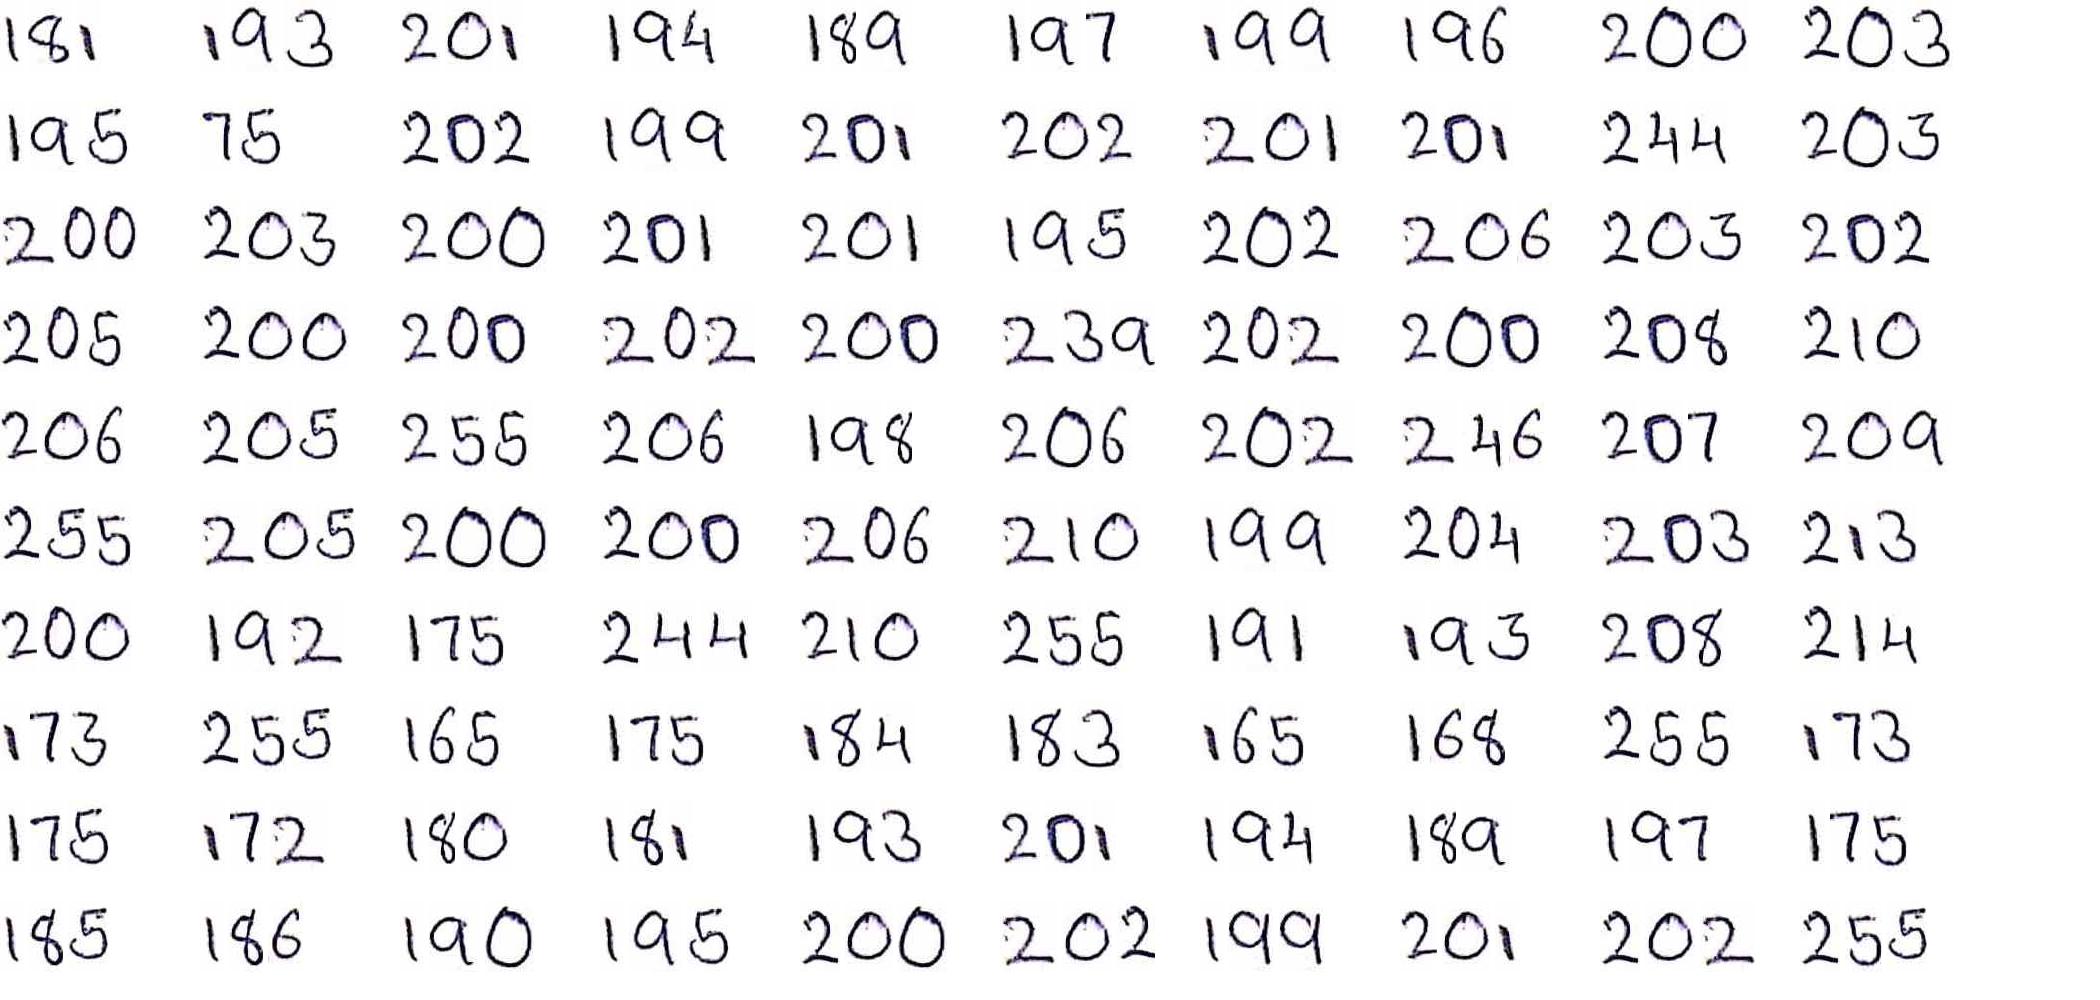 181 193 201 194 189 197 199 196 200 203
195 75 202 199 201 202 201 201 244 203
200 203 200 201 201 195 202 206 203 202
205 200 200 202 200 239 202 200 208 210
206 205 255 206 198 206 202 246 207 209
255 205 200 200 206 210 199 204 203 213
200 192 175 244 210 255 191 193 208 214
173 255 165 175 184 183 165 168 255 173
175 172 180 181 193 201 194 189 197 175
185 186 190 195 200 202 199 201 202 255